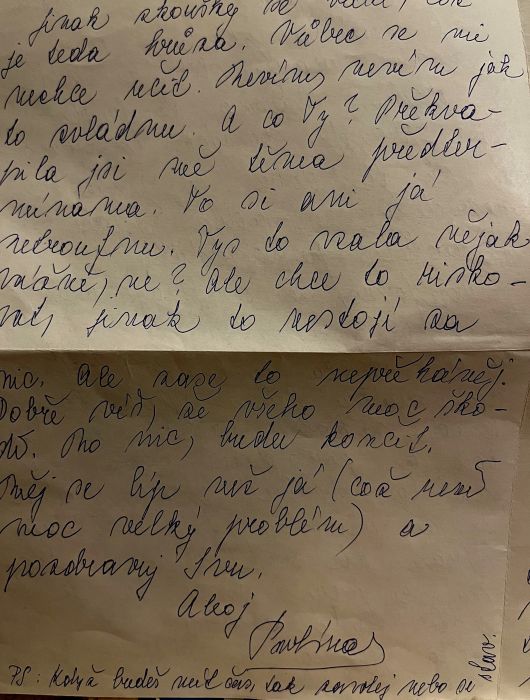 jinak zkoušky se valí, což
je teda hrůza. Vůbec se mi
nechce učit. Nevím, nevím jak
to zvládnu. A co Ty? Překva-
pila jsi mě těma předter-
mínama. To si ani já
netroufnu. Tys to vzala nějak
vážně, ne? Ale chce to risko-
vat, jinak to nestojí za
nic. Ale zase to nepřeháněj.
Dobře víš, že všeho moc ško-
dí. No nic, budu končit.
Měj se líp než já (což není
moc velký problém) a
pozdravuj
Ahoj
Pavlína
PS: Když budeš mít čas, tak zavolej nebo se
stav.